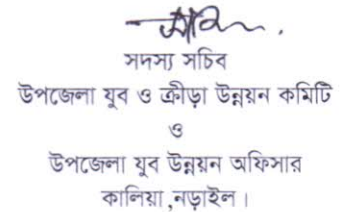 সদস্য সচিব
উপজেলা যুব ও ক্রীড়া উন্নয়ন কমিটি
ও
উপজেলা যুব উন্নয়ন অফিসার
কালিয়া ,নড়াইল ।